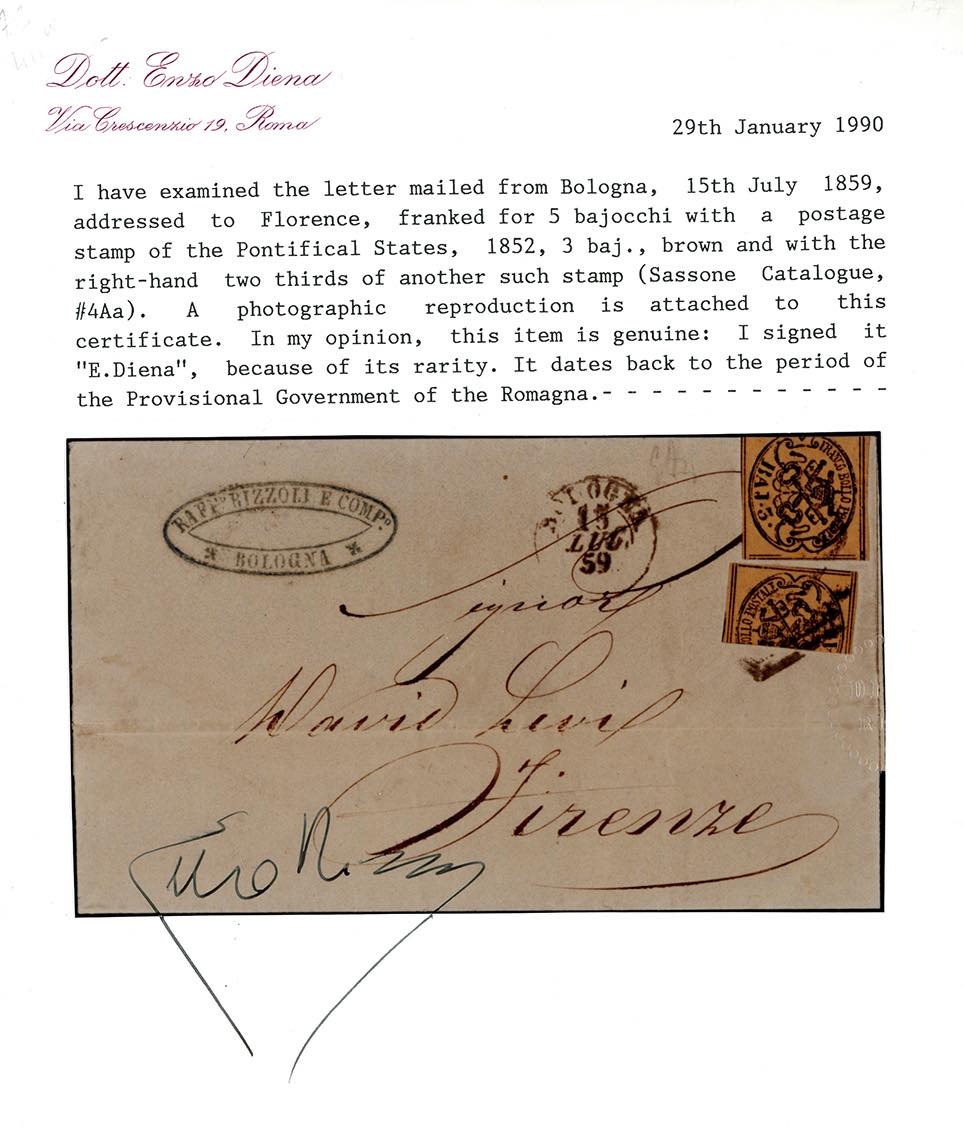 Dott. Enzo Diena
Via Crescenzio 19, Roma
29th January 1990
I have examined the letter mailed from Bologna, 15th July 1859,
addressed to Florence, franked for 5 bajocchi with a postage
stamp of the Pontifical States, 1852, 3 baj., brown and with the
right-hand two thirds of another such stamp (Sassone Catalogue,
#4Aa). A photographic reproduction is attached to this
certificate. In my opinion, this item is genuine: I signed it
"E.Diena", because of its rarity. It dates back to the period of
the Provisional Government of the Romagna.- - - - - - - - - - - -
RAFF.e RIZZOLI E COMP.o
* BOLOGNA *
BOLOGNA
15
LUG.
59
FRANCO BOLLO
BAJ. 3.
OLLO POSTALE
Signor
David Levi
Firenze